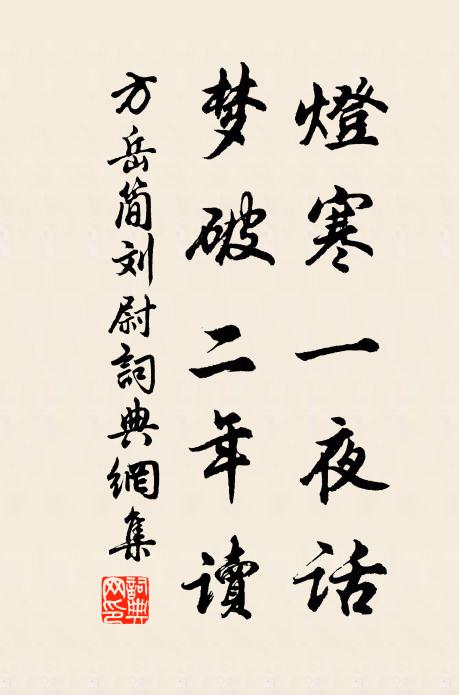 燈寒一夜话
梦破二年读
方岳简刘尉詞典網集
詞典网印